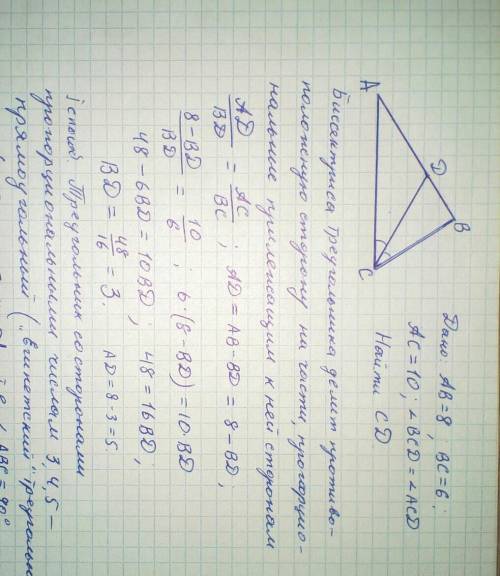 Дано: АВ=8; ВС=6;
АС=10; ∠BCD=∠ACD
Найти CD
A
D
B
C
Биссектриса треугольника делит противо-
положную сторону на части, пропорцио-
нальные прилежащим к ней сторонам
AD/BD = AC/BC; AD=AB-BD=8-BD;
8-BD/BD = 10/6; 6·(8-BD)=10·BD
48-6BD=10BD; 48=16BD;
BD=48/16=3. AD=8-3=5.
I способ. Треугольник со сторонами
пропорциональными числам 3,4,5 –
прямоугольный ("египетский" треуголь
∠ABC=90°